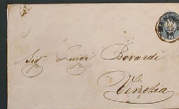 Sig. Luigi Berardi
Venezia